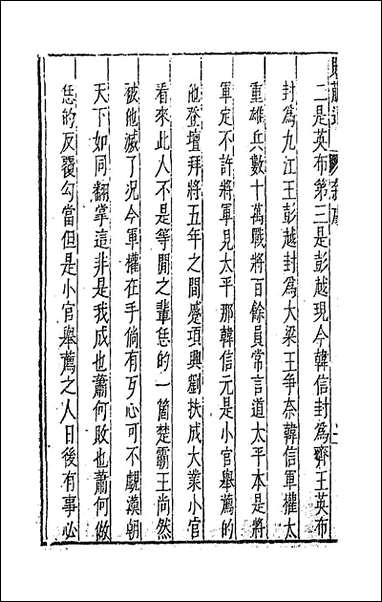 二是英布第三是彭越現今韓信封爲齊王英布
封爲九江王彭越封爲大梁王爭奈韓信軍權太
重雄兵數十萬戰將百餘員常言道太平本是將
軍定不許將軍見太平那韓信元是小官舉薦的
他登壇拜將五年之間蹙項興劉扶成大業小官
看來此人不是等閒之輩恁的一箇楚霸王尚然
被他滅了況今軍權在手倘有歹心可不覷漢朝
天下如同翻掌這非是我成也蕭何敗也蕭何做
恁的反覆勾當但是小官舉薦之人日後有事必